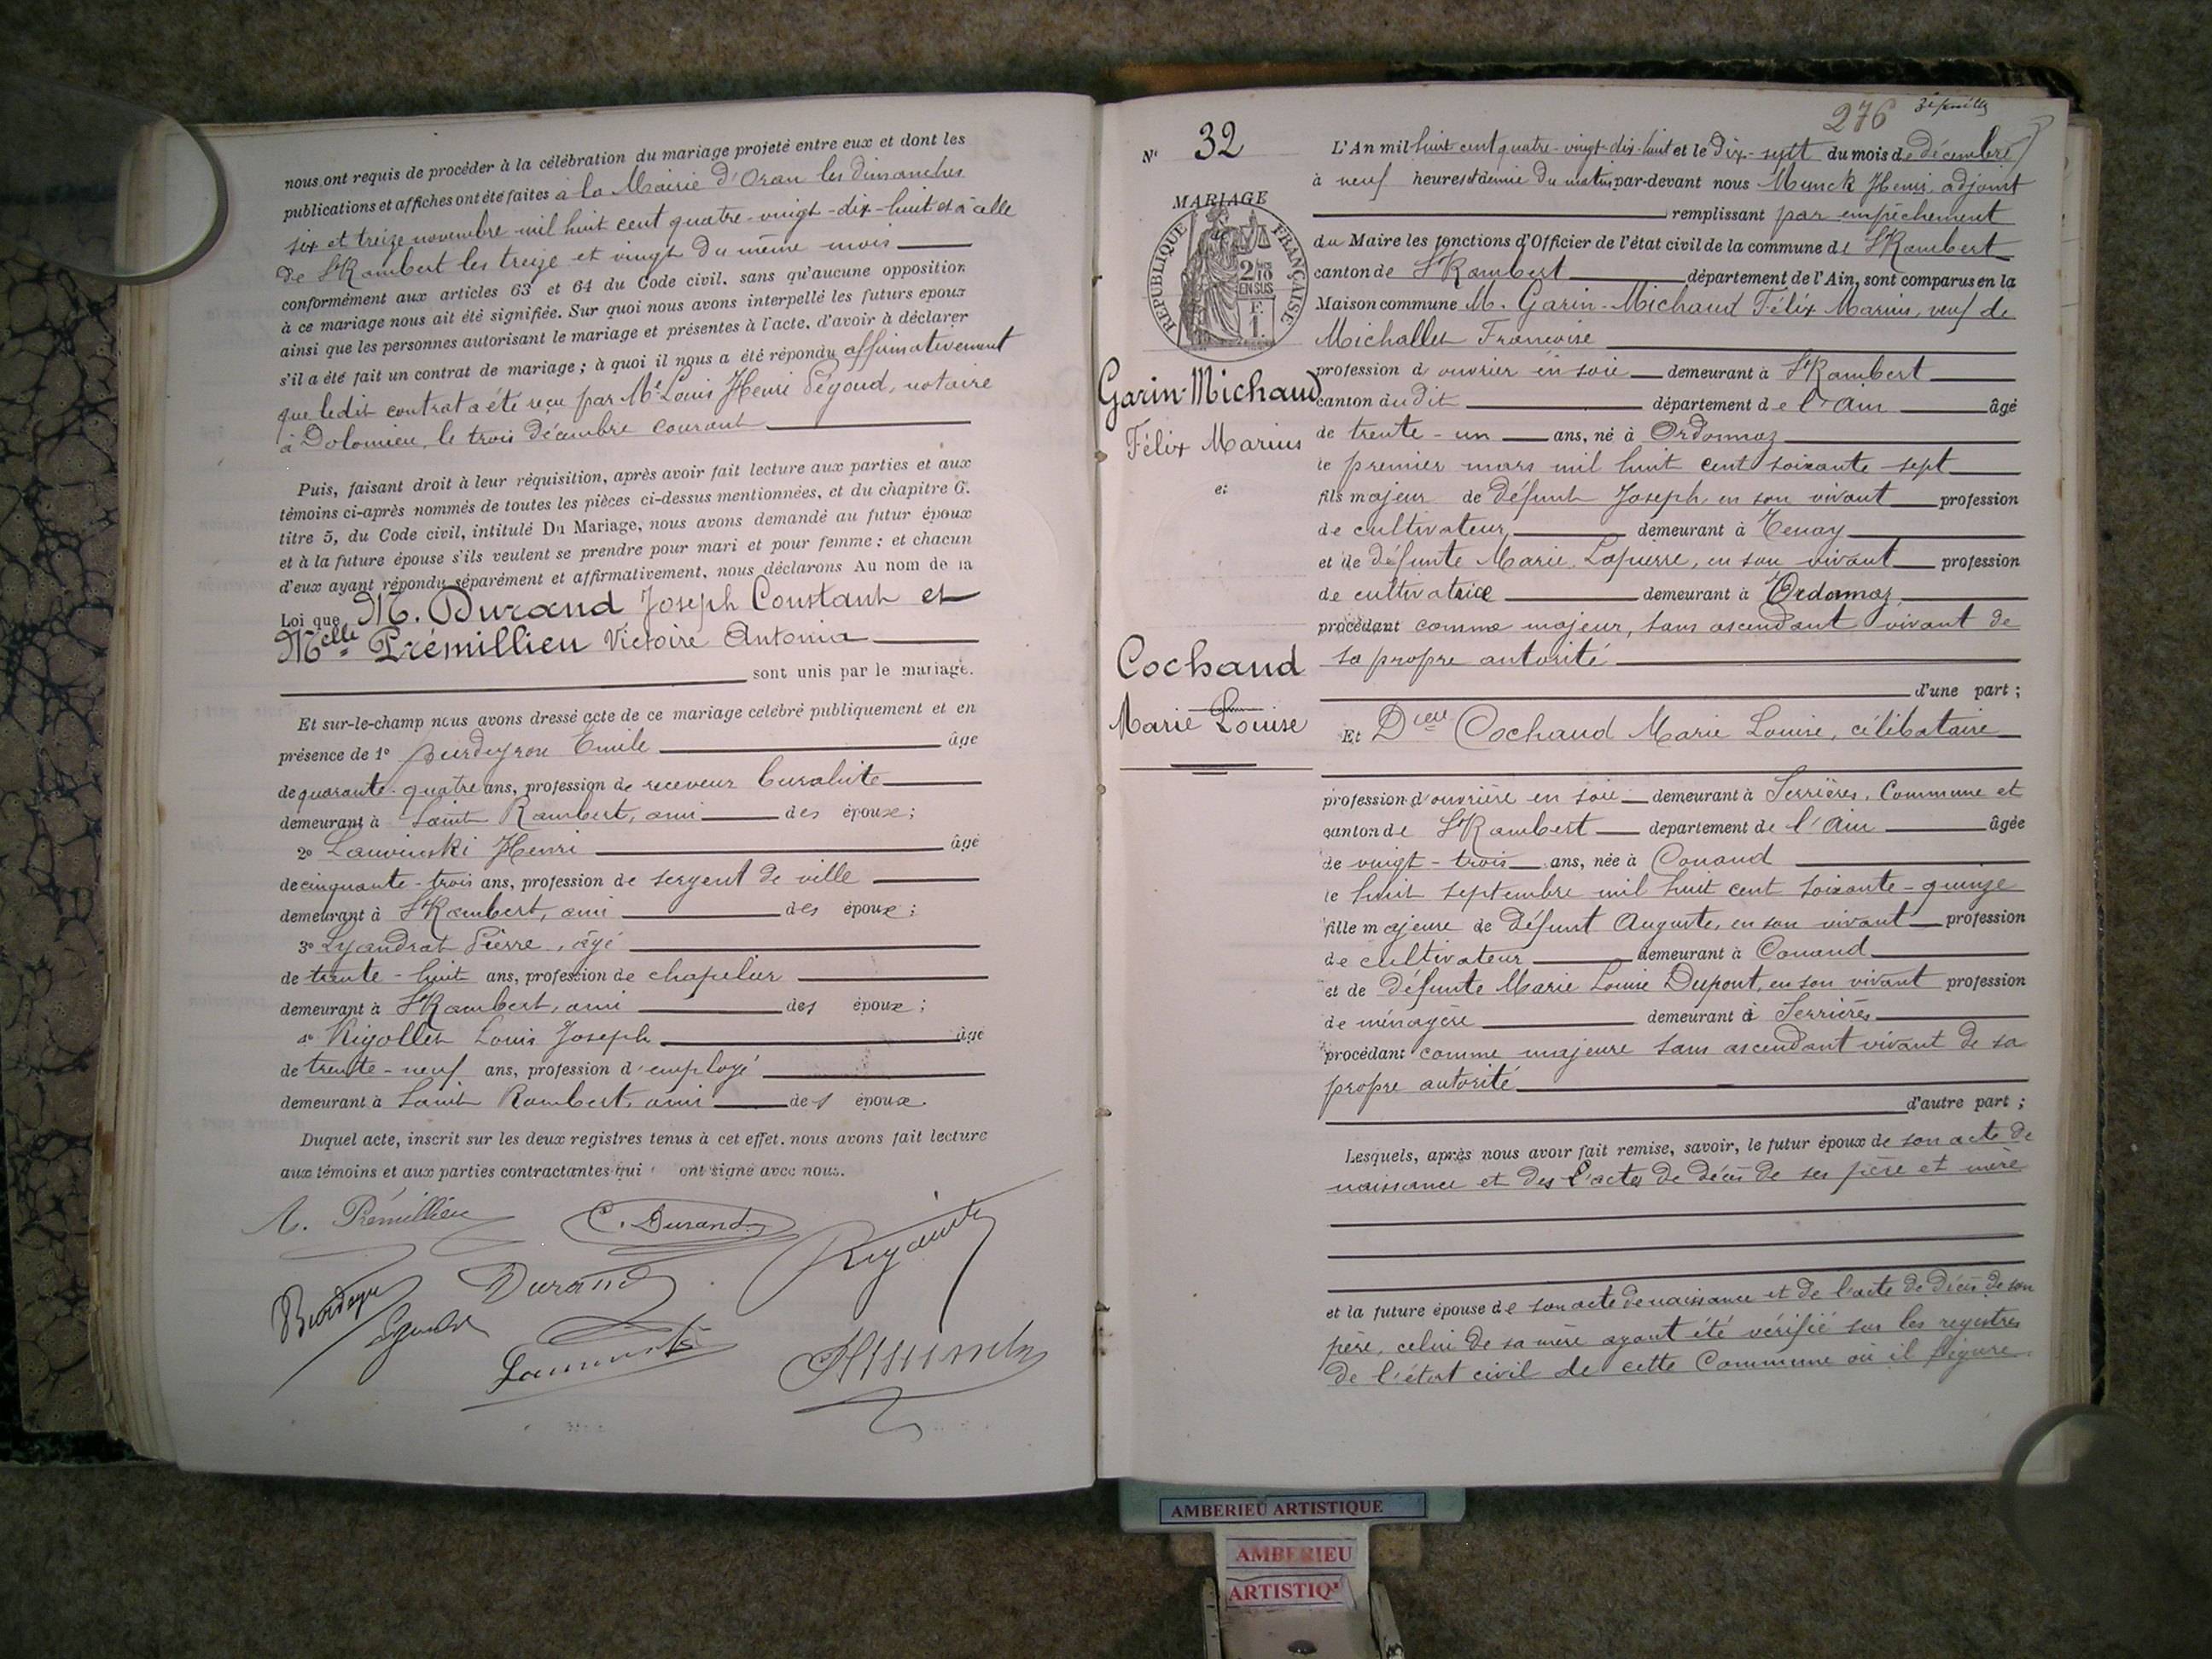 nous ont requis de procéder à la célébration du mariage projeté entre eux et dont les
publications et affiches ont été faites à la Mairie d'Oran les dimanches
six et treize novembre mil huit cent quatre-vingt-dix-huit et à celle
de St Rambert les treize et vingt du même mois
conformément aux articles 63 et 64 du Code civil, sans qu'aucune opposition
à ce mariage nous ait été signifiée. Sur quoi nous avons interpellé les futurs époux
ainsi que les personnes autorisant le mariage et présentes à l'acte, d'avoir à déclarer
s'il a été fait un contrat de mariage ; à quoi il nous a été répondu affirmativement
que ledit contrat a été reçu par Me Louis Henri Pégoud, notaire
à Dolomieu, le trois décembre courant
Puis, faisant droit à leur réquisition, après avoir fait lecture aux parties et aux
témoins ci-après nommés de toutes les pièces ci-dessus mentionnées, et du chapitre 6.
titre 5, du Code civil, intitulé Du Mariage, nous avons demandé au futur époux
et à la future épouse s'ils veulent se prendre pour mari et pour femme ; et chacun
d'eux ayant répondu séparément et affirmativement, nous déclarons Au nom de la
Loi que M. Durand Joseph Constant et
Melle Prémillieu Victoire Antonia
sont unis par le mariage.
Et sur-le-champ nous avons dressé acte de ce mariage célébré publiquement et en
présence de 1° Burdeyron Emile âgé
de quarante-quatre ans, profession de receveur buraliste
demeurant à Saint Rambert, ami des époux ;
2° Henri âgé
de cinquante-trois ans, profession de sergent de ville
demeurant à St Rambert, ami des époux ;
3° Lyandrat Pierre, âgé
de trente-huit ans, profession de chapelier
demeurant à St Rambert, ami des époux ;
4° Rigollet Louis Joseph âgé
de trente-neuf ans, profession d'employé
demeurant à Saint Rambert, ami des époux.
Duquel acte, inscrit sur les deux registres tenus à cet effet, nous avons fait lecture
aux témoins et aux parties contractantes qui ont signé avec nous.
A. Prémillieu C. Durand
Durand
N° 32
276 3e feuille
MARIAGE
RÉPUBLIQUE FRANÇAISE
2/10 EN SUS
F. 1
Garin-Michaud
Félix Marius
et
Cochaud
Marie Louise
L'An mil huit cent quatre-vingt-dix-huit et le dix-sept du mois de décembre
à neuf heures et demie du matin par-devant nous Munck Henri, adjoint
remplissant par empêchement
du Maire les fonctions d'Officier de l'état civil de la commune de St Rambert
canton de St Rambert département de l'Ain, sont comparus en la
Maison commune M. Garin-Michaud Félix Marius, veuf de
Michallet Françoise
profession d'ouvrier en soie demeurant à St Rambert
canton dudit département de l'Ain âgé
de trente-un ans, né à Ordonnaz
le premier mars mil huit cent soixante-sept
fils majeur de défunt Joseph en son vivant profession
de cultivateur, demeurant à Tenay
et de défunte Marie Lapierre, en son vivant profession
de cultivatrice demeurant à Ordonnaz,
procédant comme majeur, sans ascendant vivant de
sa propre autorité
d'une part ;
Et Dlle Cochaud Marie Louise, célibataire
profession d'ouvrière en soie demeurant à Serrières, Commune et
canton de St Rambert département de l'Ain âgée
de vingt-trois ans, née à Conand
le huit septembre mil huit cent soixante-quinze
fille majeure de défunt Auguste, en son vivant profession
de cultivateur demeurant à Conand
et de défunte Marie Louise Dupont, en son vivant profession
de ménagère demeurant à Serrières
procédant comme majeure sans ascendant vivant de sa
propre autorité
d'autre part ;
Lesquels, après nous avoir fait remise, savoir, le futur époux de son acte de
naissance et des actes de décès de ses père et mère
et la future épouse de son acte de naissance et de l'acte de décès de son
père, celui de sa mère ayant été vérifié sur les registres
de l'état civil de cette Commune où il figure
AMBERIEU ARTISTIQUE
AMBERIEU
ARTISTIQ